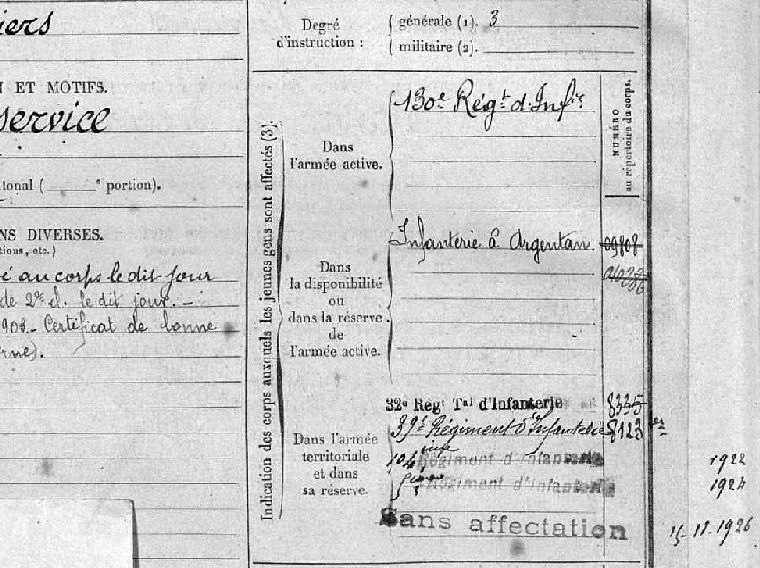 iers
ET MOTIFS.
service
tonal ( e portion).
NS DIVERSES.
tions, etc.)
é au corps le dit jour
de 2e cl. le dit jour. —
1908 - Certificat de bonne
rne).
Degré
d'instruction :
générale (1). 3
militaire (2).
Indication des corps auxquels les jeunes gens sont affectés (3).
NUMÉRO
au répertoire du corps.
Dans
l'armée active.
130e Régt d'Infie
Dans
la disponibilité
ou
dans la réserve
de
l'armée active.
Infanterie à Argentan.
Dans l'armée
territoriale
et dans
sa réserve.
32e Rég Tal d'Infanterie 8335
39e Régiment d'Infanterie 8123
104 Régiment d'Infanterie 1922
Régiment d'Infanterie 1924
Sans affectation 15-11-1926